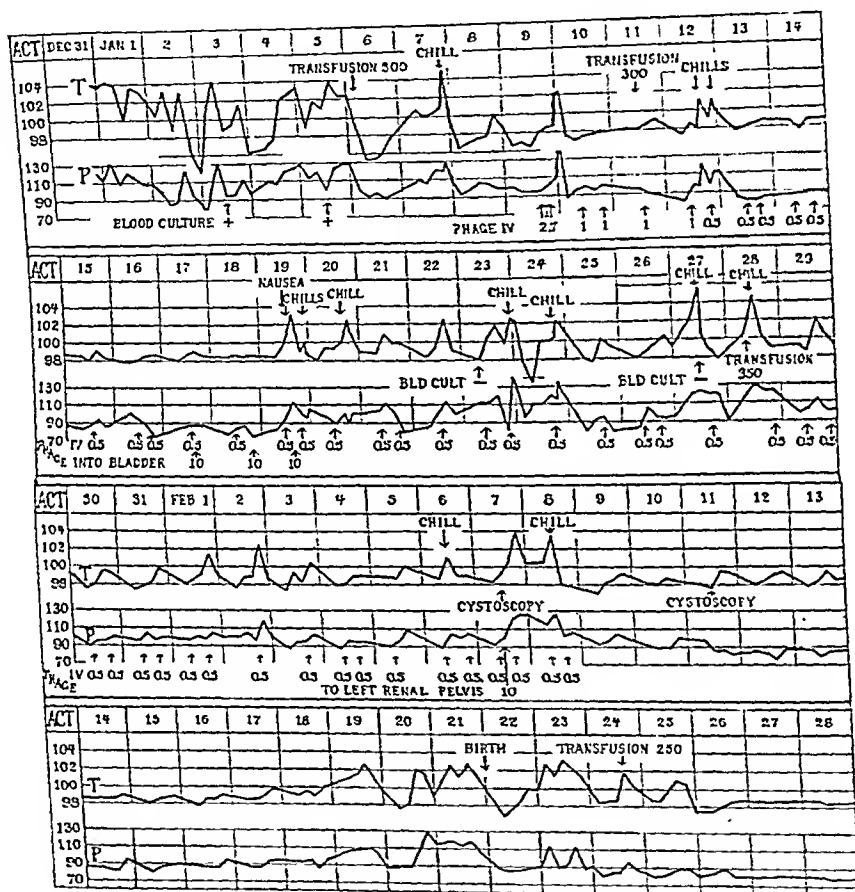 ACT DEC 31 JAN 1 2 3 4 5 6 7 8 9 10 11 12 13 14
CHILL
TRANSFUSION 500 TRANSFUSION 300 CHILLS
T
104
102
100
98
P
130
110
90
70
BLOOD CULTURE + + PHAGE IV 2.5 1 1 1 1 0.5 0.5 0.5 0.5 0.5
ACT 15 16 17 18 19 20 21 22 23 24 25 26 27 28 29
NAUSEA
CHILLS CHILL CHILL CHILL CHILL CHILL
104
102
100
98
BLD CULT – BLD CULT – TRANSFUSION 350
130
110
90
70
IV 0.5 0.5 0.5 0.5 0.5 0.5 0.5 0.5 0.5 0.5 0.5 0.5 0.5 0.5 0.5 0.5 0.5 0.5 0.5 0.5
PHAGE INTO BLADDER 10 10 10
ACT 30 31 FEB 1 2 3 4 5 6 7 8 9 10 11 12 13
CHILL CHILL
104
102
100
98
T
CYSTOSCOPY CYSTOSCOPY
130
110
90
70
P
PHAGE IV 0.5 0.5 0.5 0.5 0.5 0.5 0.5 0.5 0.5 0.5 0.5 0.5 0.5 0.5 0.5 0.5
TO LEFT RENAL PELVIS 10
ACT 14 15 16 17 18 19 20 21 22 23 24 25 26 27 28
BIRTH TRANSFUSION 250
104
102
100
98
T
130
110
90
70
P